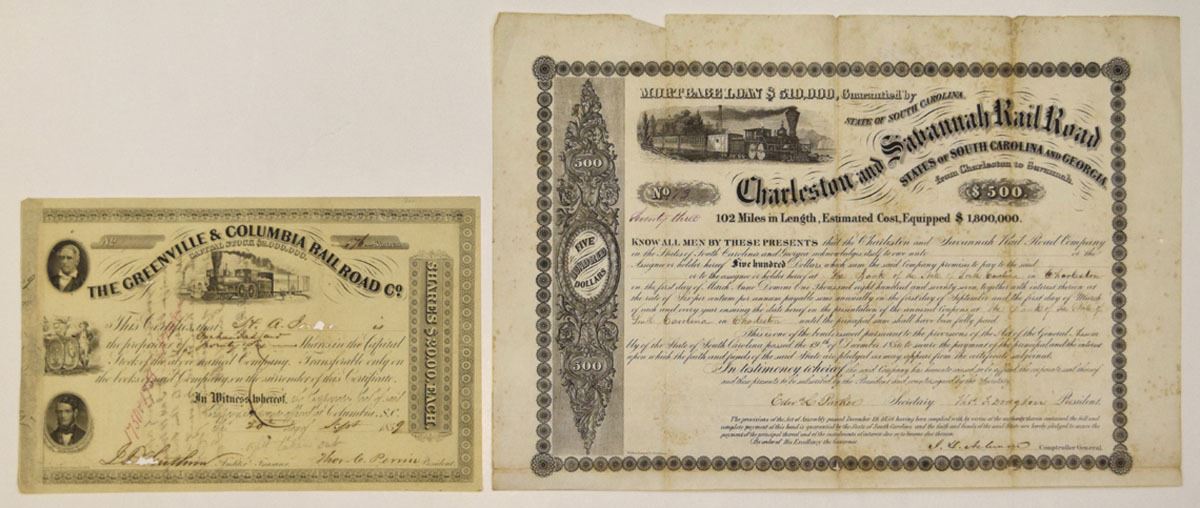 No
Shares
THE GREENVILLE & COLUMBIA RAIL ROAD Co.
CAPITAL STOCK $2,000,000.
This Certifies that H. A. is
the proprietor of
Shares in the Capital
Stock of the above named Company. Transferable only on
the books of said Company, on the surrender of this Certificate.
In Witness whereof,
at Columbus, S.C.
the 20 day of Sept 1859
Auditor Treasurer Thos. C. Perrin President
SHARES $20.00 EACH.
MORTGAGE LOAN $510,000, Guarantied by
STATE OF SOUTH CAROLINA.
Charleston and Savannah Rail Road
STATES OF SOUTH CAROLINA AND GEORGIA.
from Charleston to Savannah.
No
$500
102 Miles in Length, Estimated Cost, Equipped $1,800,000.
500
FIVE HUNDRED DOLLARS
500
KNOW ALL MEN BY THESE PRESENTS that the Charleston and Savannah Rail Road Company
in the States of South Carolina and Georgia acknowledge itself to owe unto or the
Assignee or holder hereof Five hundred Dollars which sum the said Company promise to pay to the said
or to the assignee or holder hereof at the Bank of the State of South Carolina in Charleston
on the first day of March Anno Domini One Thousand eight hundred and seventy seven, together with interest thereon at
the rate of Six per centum per annum payable semi annually on the first day of September and the first day of March
of each and every year ensuing the date hereof on the presentation of the annexed Coupons at the Bank of the State of
South Carolina in Charleston until the principal sum shall have been fully paid.
This is one of the bonds issued pursuant to the provisions of the Act of the General Assem-
bly of the State of South Carolina passed the 19th of December 1856 to secure the payment of the principal and the interest
upon which the faith and funds of the said State are pledged as may appear from the certificate subjoined.
In testimony whereof the said Company has hereunto caused to be affixed the corporate seal thereof
and these presents to be subscribed by the President and countersigned by the Secretary.
Secretary Thos. F. Drayton President.
The provisions of the Act of Assembly passed December 19, 1856 having been complied with by virtue of the authority therein contained the full and
complete payment of this bond is guarantied by the State of South Carolina and the faith and funds of the said State are hereby pledged to secure the
payment of the principal thereof and of the instalments of interest due or to become due thereon.
By order of His Excellency the Governor
Comptroller General.